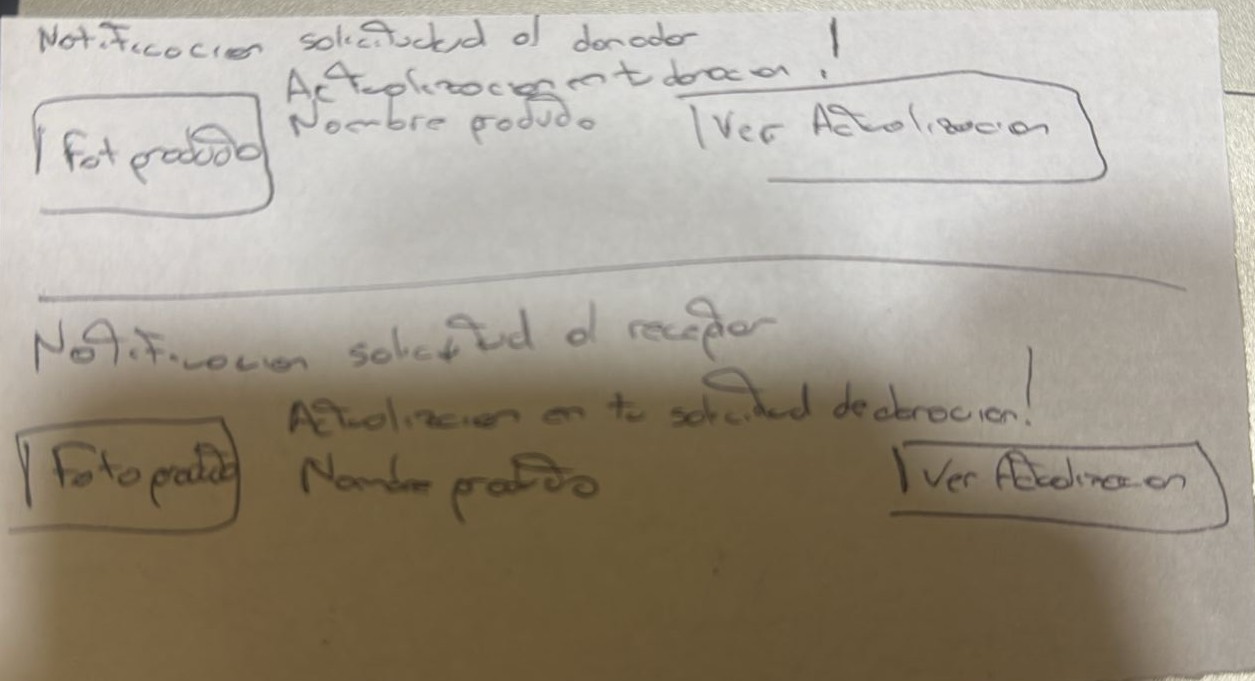 Notificacion solicitud al donador
Actualizacion en tu donacion!
Foto producto
Nombre producto
Ver Actualizacion
Notificacion solicitud al receptor
Actualizacion en tu solicitud de donacion!
Foto producto
Nombre producto
Ver Actualizacion